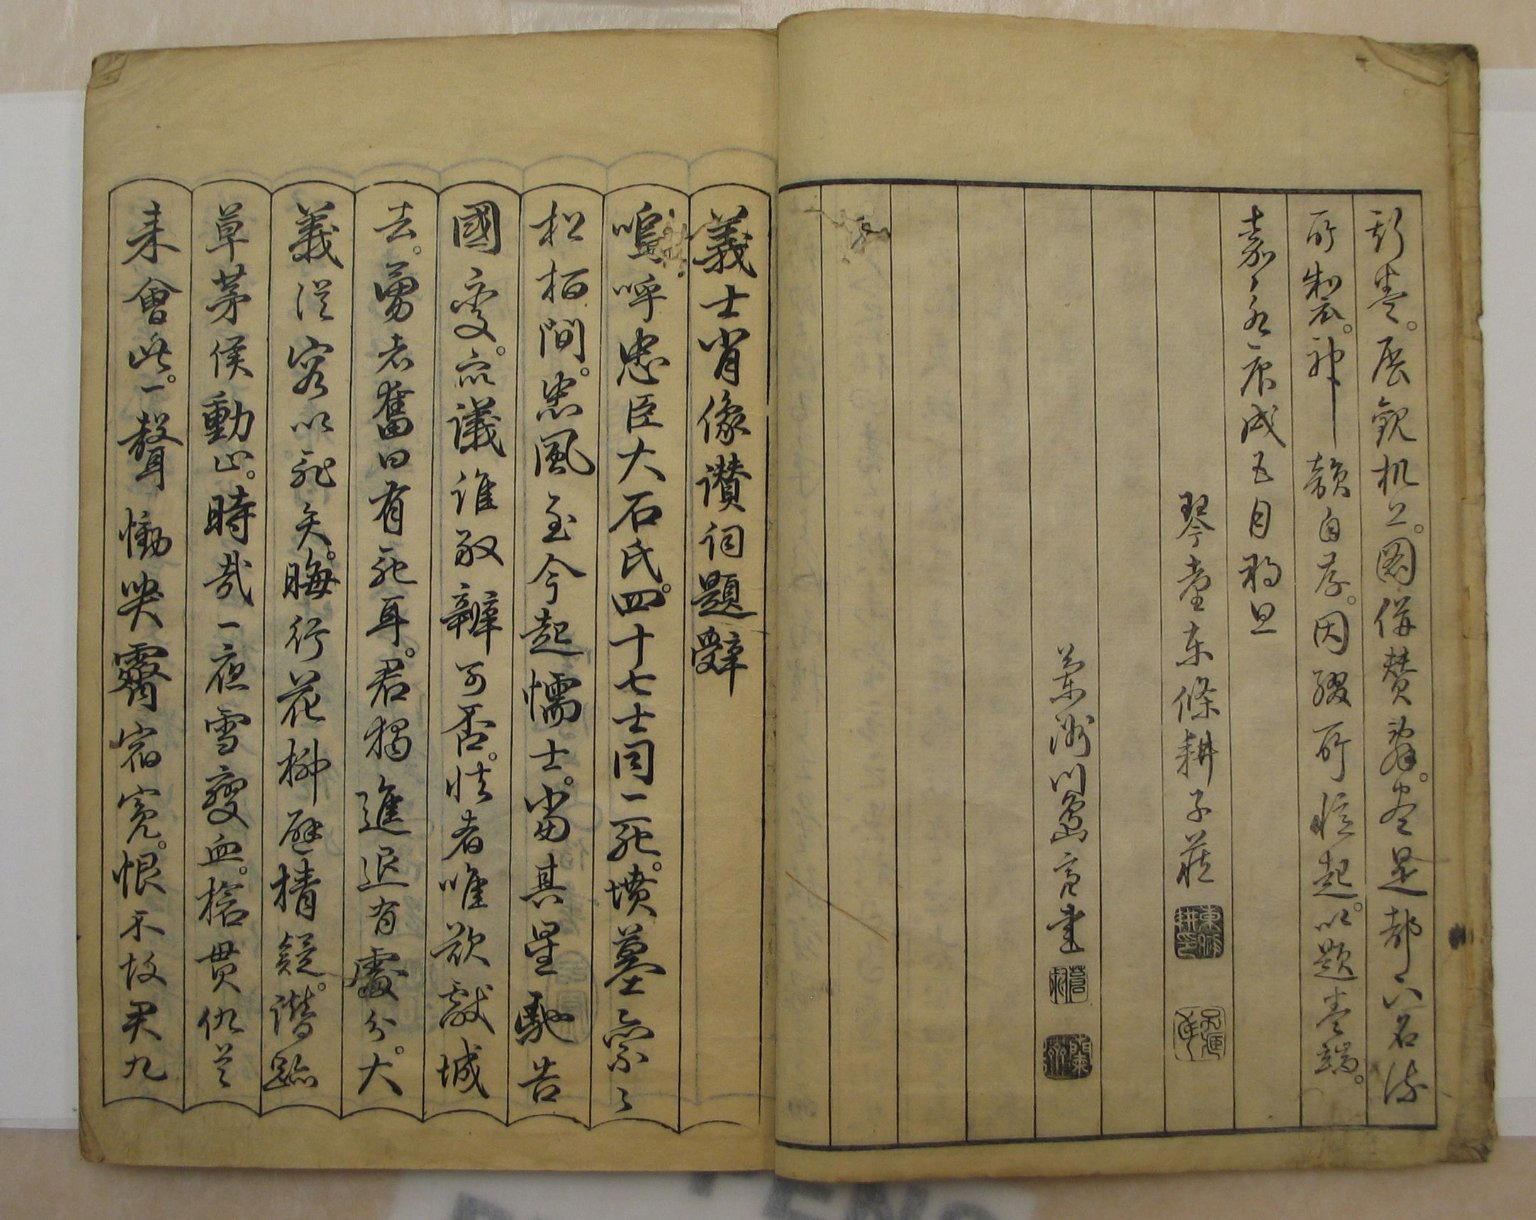 彩巻。展観机上。図併賛辞。盡是都下名流
所製。神韻自存。因綴所臆起。以題巻端。
嘉永庚戌五月初旦
琴臺東條耕子蔵
蘭洲川島
義士肖像讃詞題辭
嗚呼忠臣大石氏。四十七士同一死。墳墓累々
松栢間。忠風至今起懦士。當其星馳告
國変。衆議誰敢辨可否。怯者唯欲献城
去。勇者奮曰有死耳。君独進退有處分。大
義従容以死矣。晦行花柳避猜疑。潜跡
草茅候動止。時哉一夜雪変血。槍貫仇
来會此。一聲慟哭霽宿冤。恨不扶君九